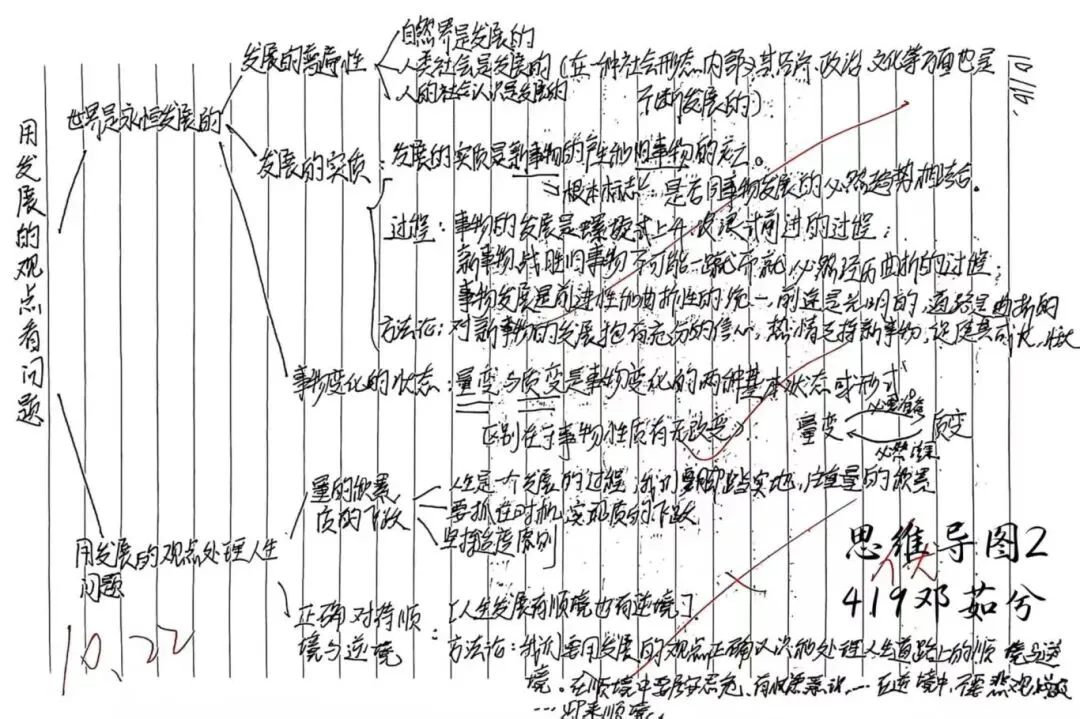 用发展的观点看问题
世界是永恒发展的
发展的普遍性
自然界是发展的
人类社会是发展的(在一种社会形态内部,其经济、政治、文化等方面也是
不断发展的)
人的社会认识是发展的
发展的实质:发展的实质是新事物的产生和旧事物的灭亡。
根本标志:是否同事物发展的必然趋势相适合。
过程:事物的发展是螺旋式上升,波浪式前进的过程;
新事物战胜旧事物不可能一蹴而就,必然经历曲折的过程;
事物发展是前进性和曲折性的统一,前途是光明的,道路是曲折的
方法论:对新事物的发展抱有充分的信心,热情支持新事物,促使其成长、壮大
事物变化的状态:量变与质变是事物变化的两种基本状态或形式
区别在于事物性质有无改变
量变
必要准备
质变
必然结果
用发展的观点处理人生
问题
量的积累
质的飞跃
人生是一个发展的过程,我们要脚踏实地,注重量的积累
要抓住时机,实现质的飞跃
坚持适度原则
正确对待顺
境与逆境
[人生发展有顺境也有逆境]
方法论:我们要用发展的观点正确认识和处理人生道路上的顺境与逆
境。在顺境中要居安思危、有忧患意识,…在逆境中,不要悲观
…迎来顺境。
思维导图2
419邓茹兮
10.22
10/21